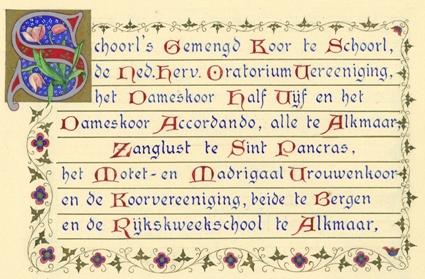 Schoorl's Gemengd Koor te Schoorl,
de Ned. Herv. Oratorium Vereeniging,
het Dameskoor Half Vijf en het
Dameskoor Accordando, alle te Alkmaar
Zanglust te Sint Pancras,
het Motet- en Madrigaal Vrouwenkoor
en de Koorvereeniging, beide te Bergen
en de Rijkskweekschool te Alkmaar,